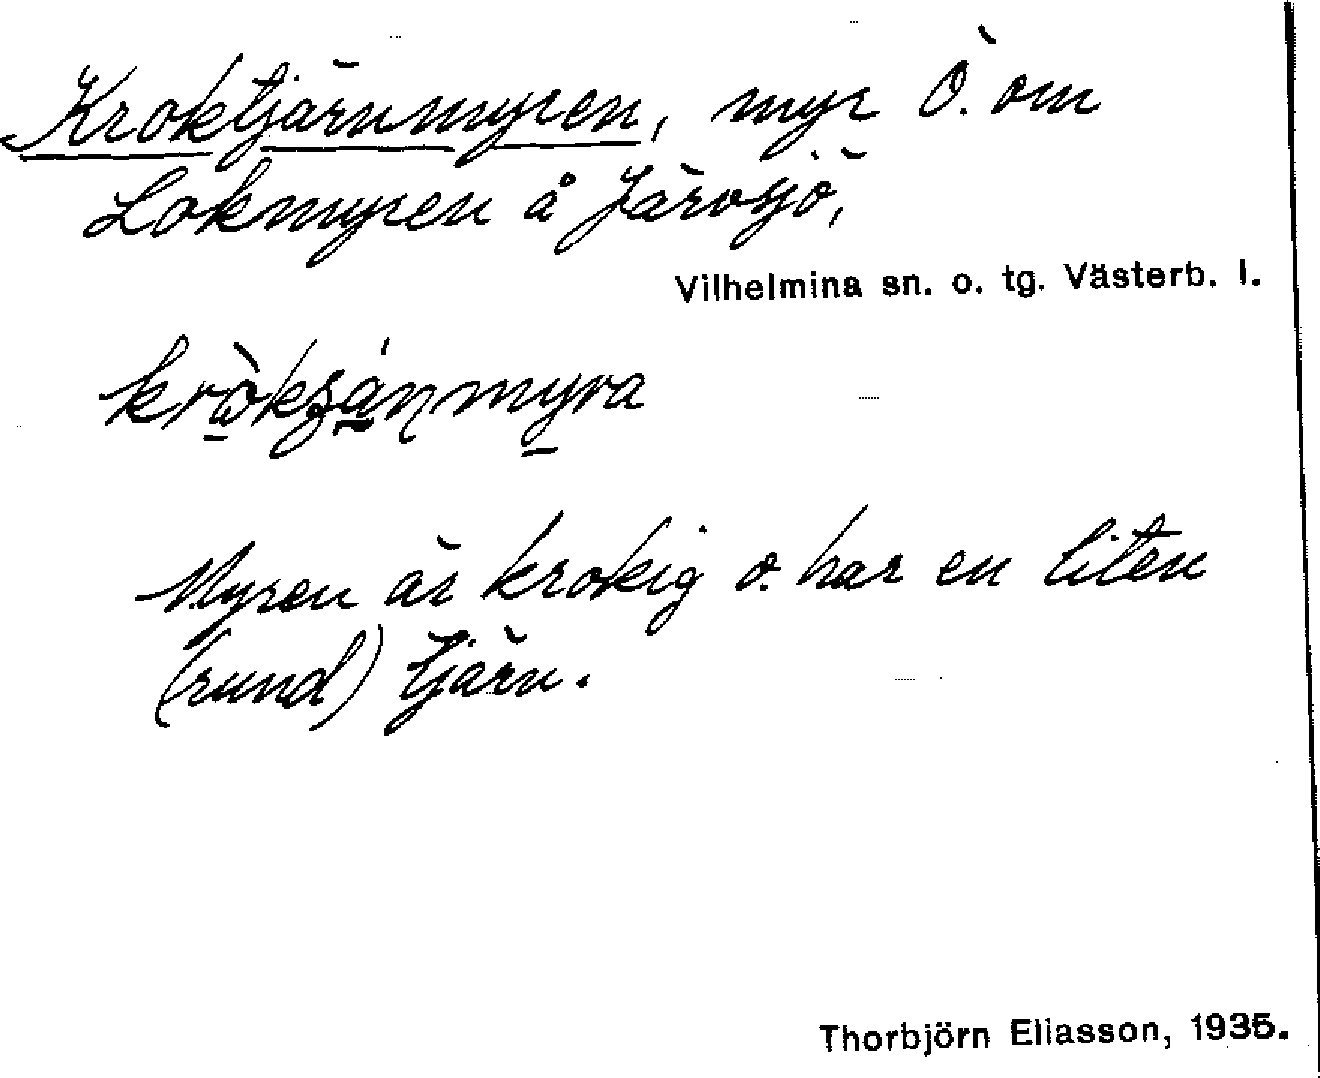 Kroktjärnmyren, myr Ö. om
Lokmyren å Järvsjö,
Vilhelmina sn. o. tg. Västerb. l.
Myren är krokig o. har en liten
(rund) tjärn.
Thorbjörn Eliasson, 1935.